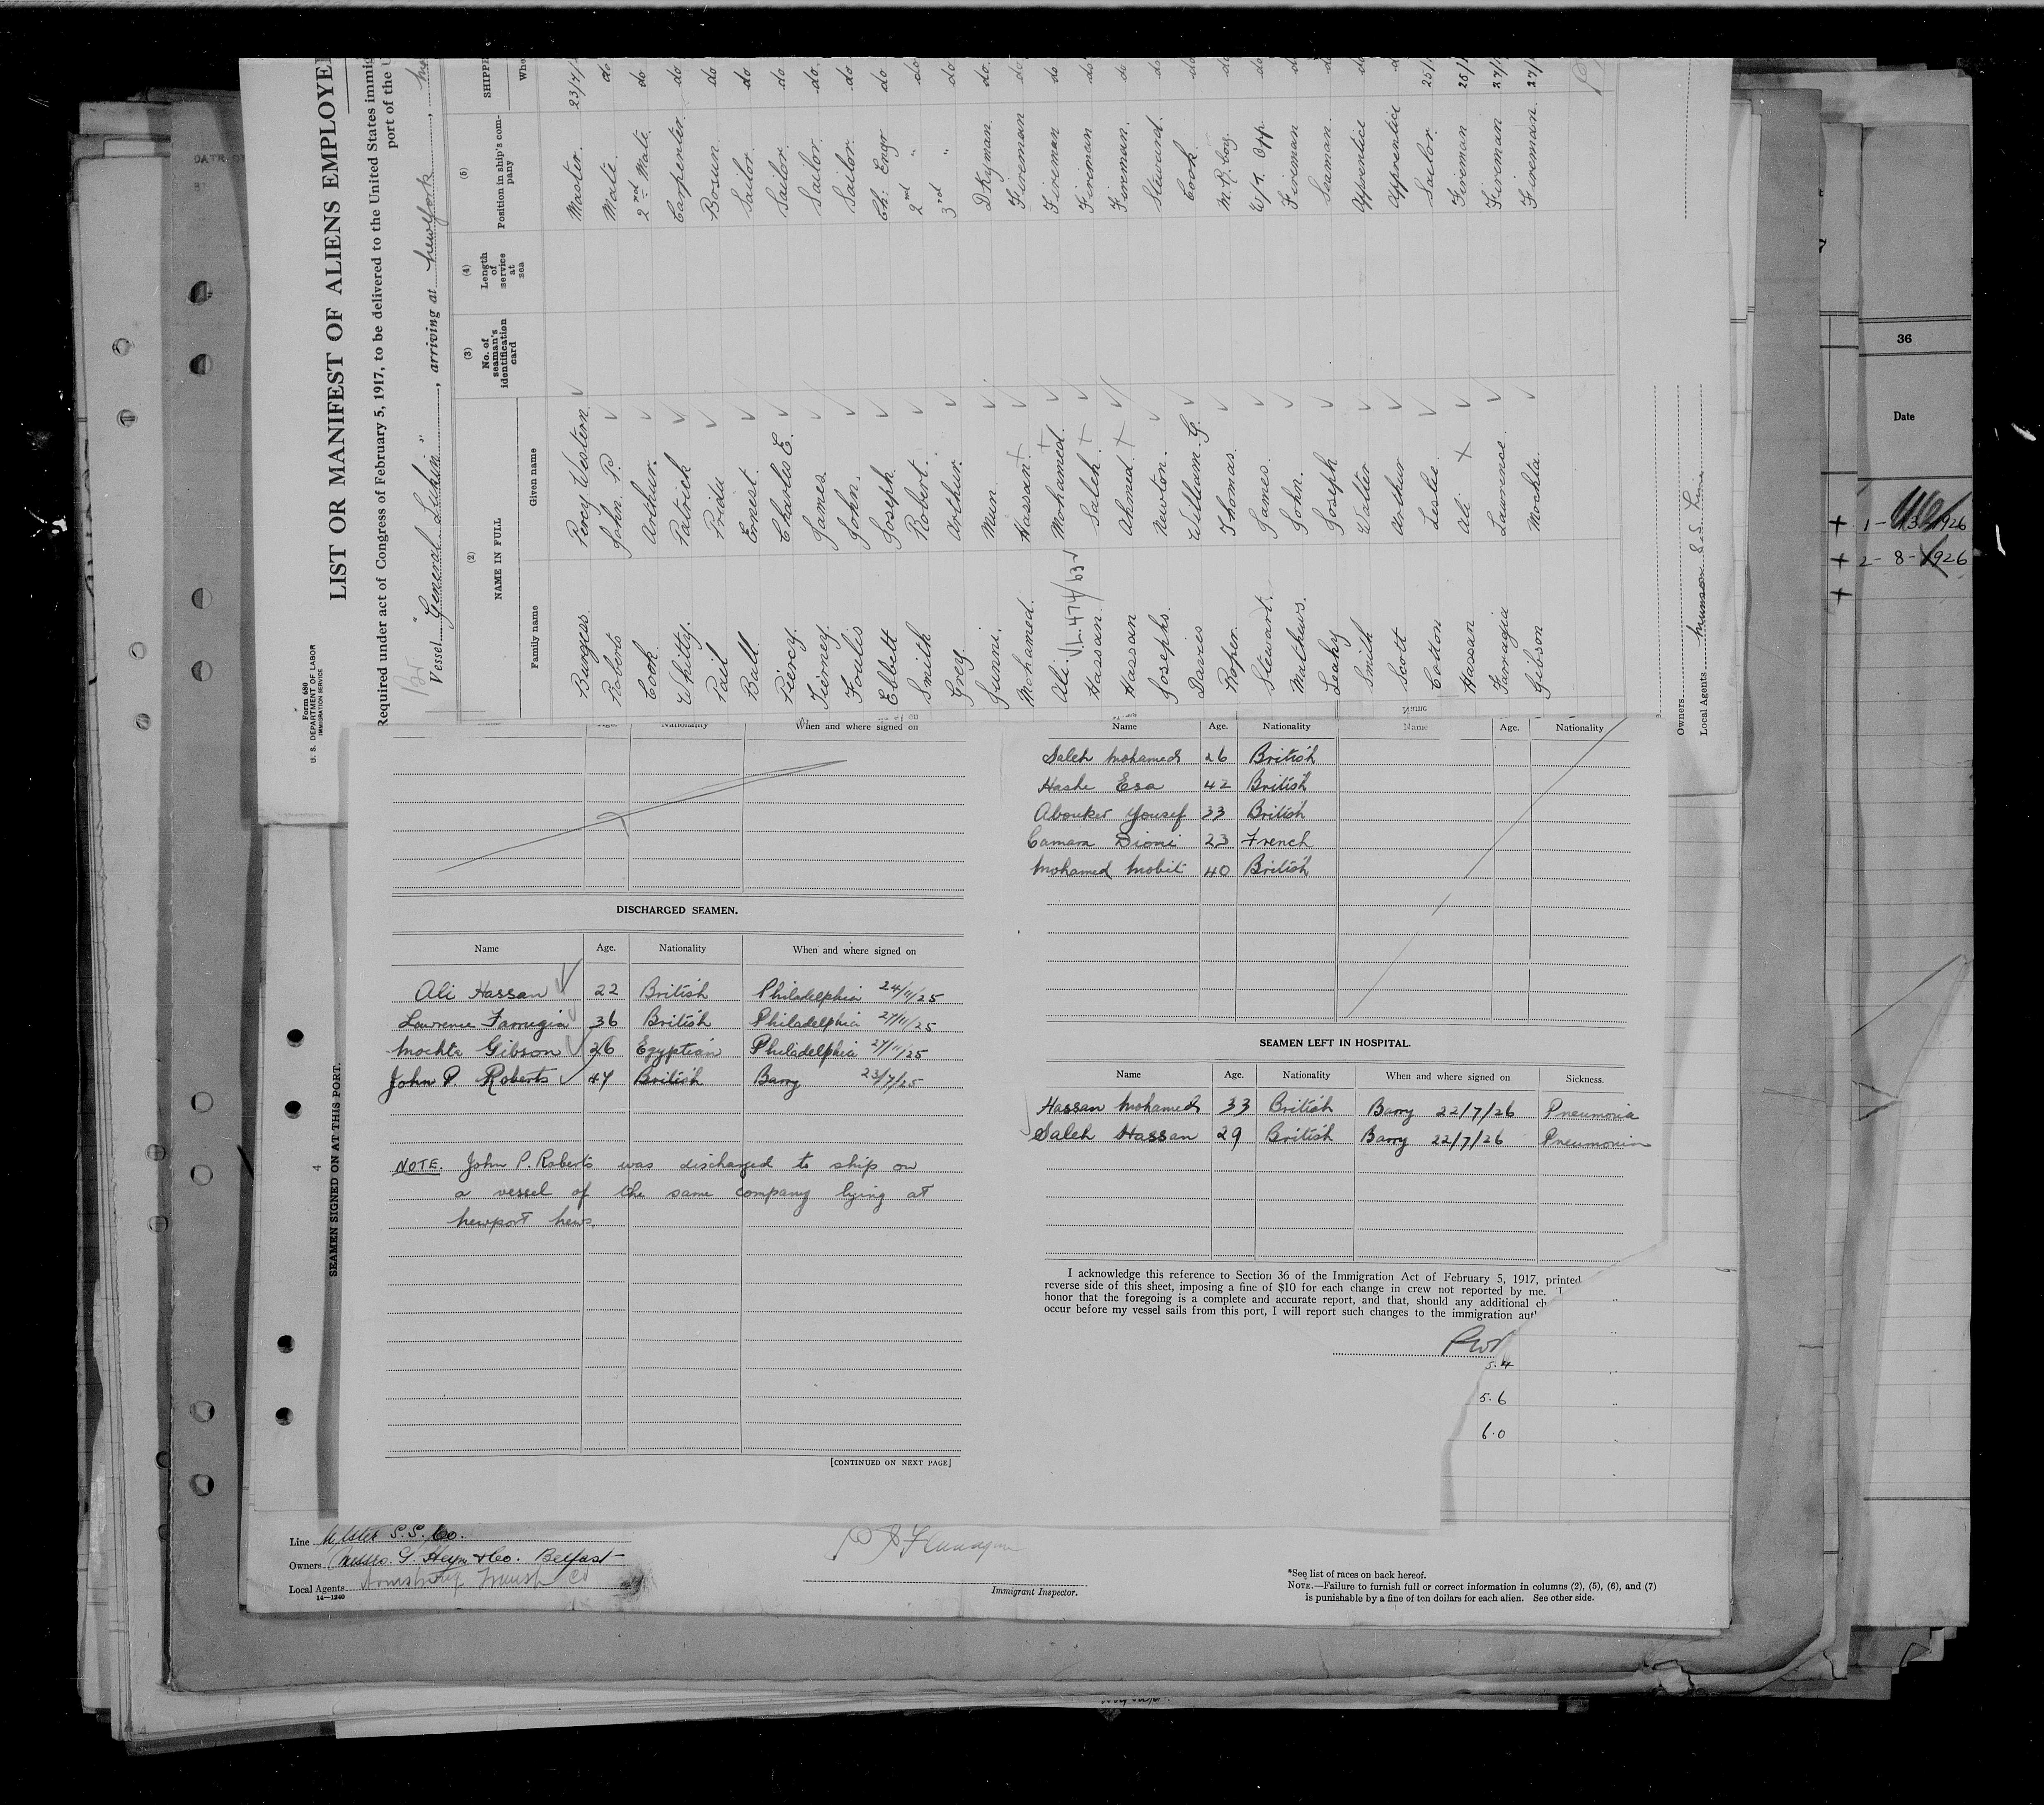 Form 680
U. S. DEPARTMENT OF LABOR
IMMIGRATION SERVICE
LIST OR MANIFEST OF ALIENS EMPLOYE
Required under act of Congress of February 5, 1917, to be delivered to the United States immig
port of the U
Br
Vessel "General Lukin", arriving at New York
(2)
NAME IN FULL
Family name Given name
(3)
No. of seaman's identification card
(4)
Length of service at sea
(5)
Position in ship's company
SHIPPE
Whe
Burgess Percy Western. Master. 23/7/
Roberts John P. Mate. do
Cook Arthur. 2nd Mate do
Whitty. Patrick Carpenter. do
Pail Pridu Bosun. do
Ball Ernest. Sailor. do
Piercy. Charles E. Sailor. do
Tierney. James. Sailor. do.
Foulis John. Sailor. do
Ebbett Joseph. Ch: Engr do
Smith Robert. 2nd " do
Grey. Arthur 3rd " do
Sunni. Mun. Dkyman. do.
Mohamed. Hassan. Fireman do
Ali. Mohamed. Fireman do
Hassan. Saleh. Fireman do
Hassan Ahmed. Fireman. do
Josephs. Newton. Steward. do
Davies William G. Cook. do
Roper. Thomas. M.R. boy. do
Stewart. James. W/T. Opp do
Mathews. John. Fireman d
Leahy Joseph Seaman. d
Smith Walter Apprentice d
Scott Arthur Apprentice d
Cotton Leslie. Sailor. 25/
Hassan Ali Fireman 25/
Farrugia Laurence. Fireman 27/
Gibson Mochta. Fireman. 27/
Owners
Local Agents Munson S.S. Line
36
Date
1-
1926
2-8-1926
Age. Nationality When and where signed on
DISCHARGED SEAMEN.
Name Age. Nationality When and where signed on
Ali Hassan 22 British Philadelphia 24/11/25
Lawrence Farrugia 36 British Philadelphia 27/11/25
Mochta Gibson 26 Egyptian Philadelphia 27/11/25
John P Roberts 47 British Barry 23/7/25
NOTE. John P. Roberts was discharged to ship on
a vessel of the same company lying at
Newport News.
[CONTINUED ON NEXT PAGE]
4
SEAMEN SIGNED ON AT THIS PORT.
Name Age. Nationality Name Age. Nationality
Saleh Mohamed 26 British
Hashe Esa 42 British
Abouker Yousef 33 British
Camara Dioni 23 French
Mohamed Mobit 40 British
SEAMEN LEFT IN HOSPITAL.
Name Age. Nationality When and where signed on Sickness.
Hassan Mohamed 33 British Barry 22/7/26 Pneumonia
Saleh Hassan 29 British Barry 22/7/26 Pneumonia
I acknowledge this reference to Section 36 of the Immigration Act of February 5, 1917, printed
reverse side of this sheet, imposing a fine of $10 for each change in crew not reported by me.
honor that the foregoing is a complete and accurate report, and that, should any additional ch
occur before my vessel sails from this port, I will report such changes to the immigration aut
5.4
5.6
6.0
Line Ulster S.S. Co.
Owners Messrs. G. Heyn & Co. Belfast
Local Agents
14—1240
Immigrant Inspector.
*See list of races on back hereof.
NOTE.—Failure to furnish full or correct information in columns (2), (5), (6), and (7)
is punishable by a fine of ten dollars for each alien. See other side.